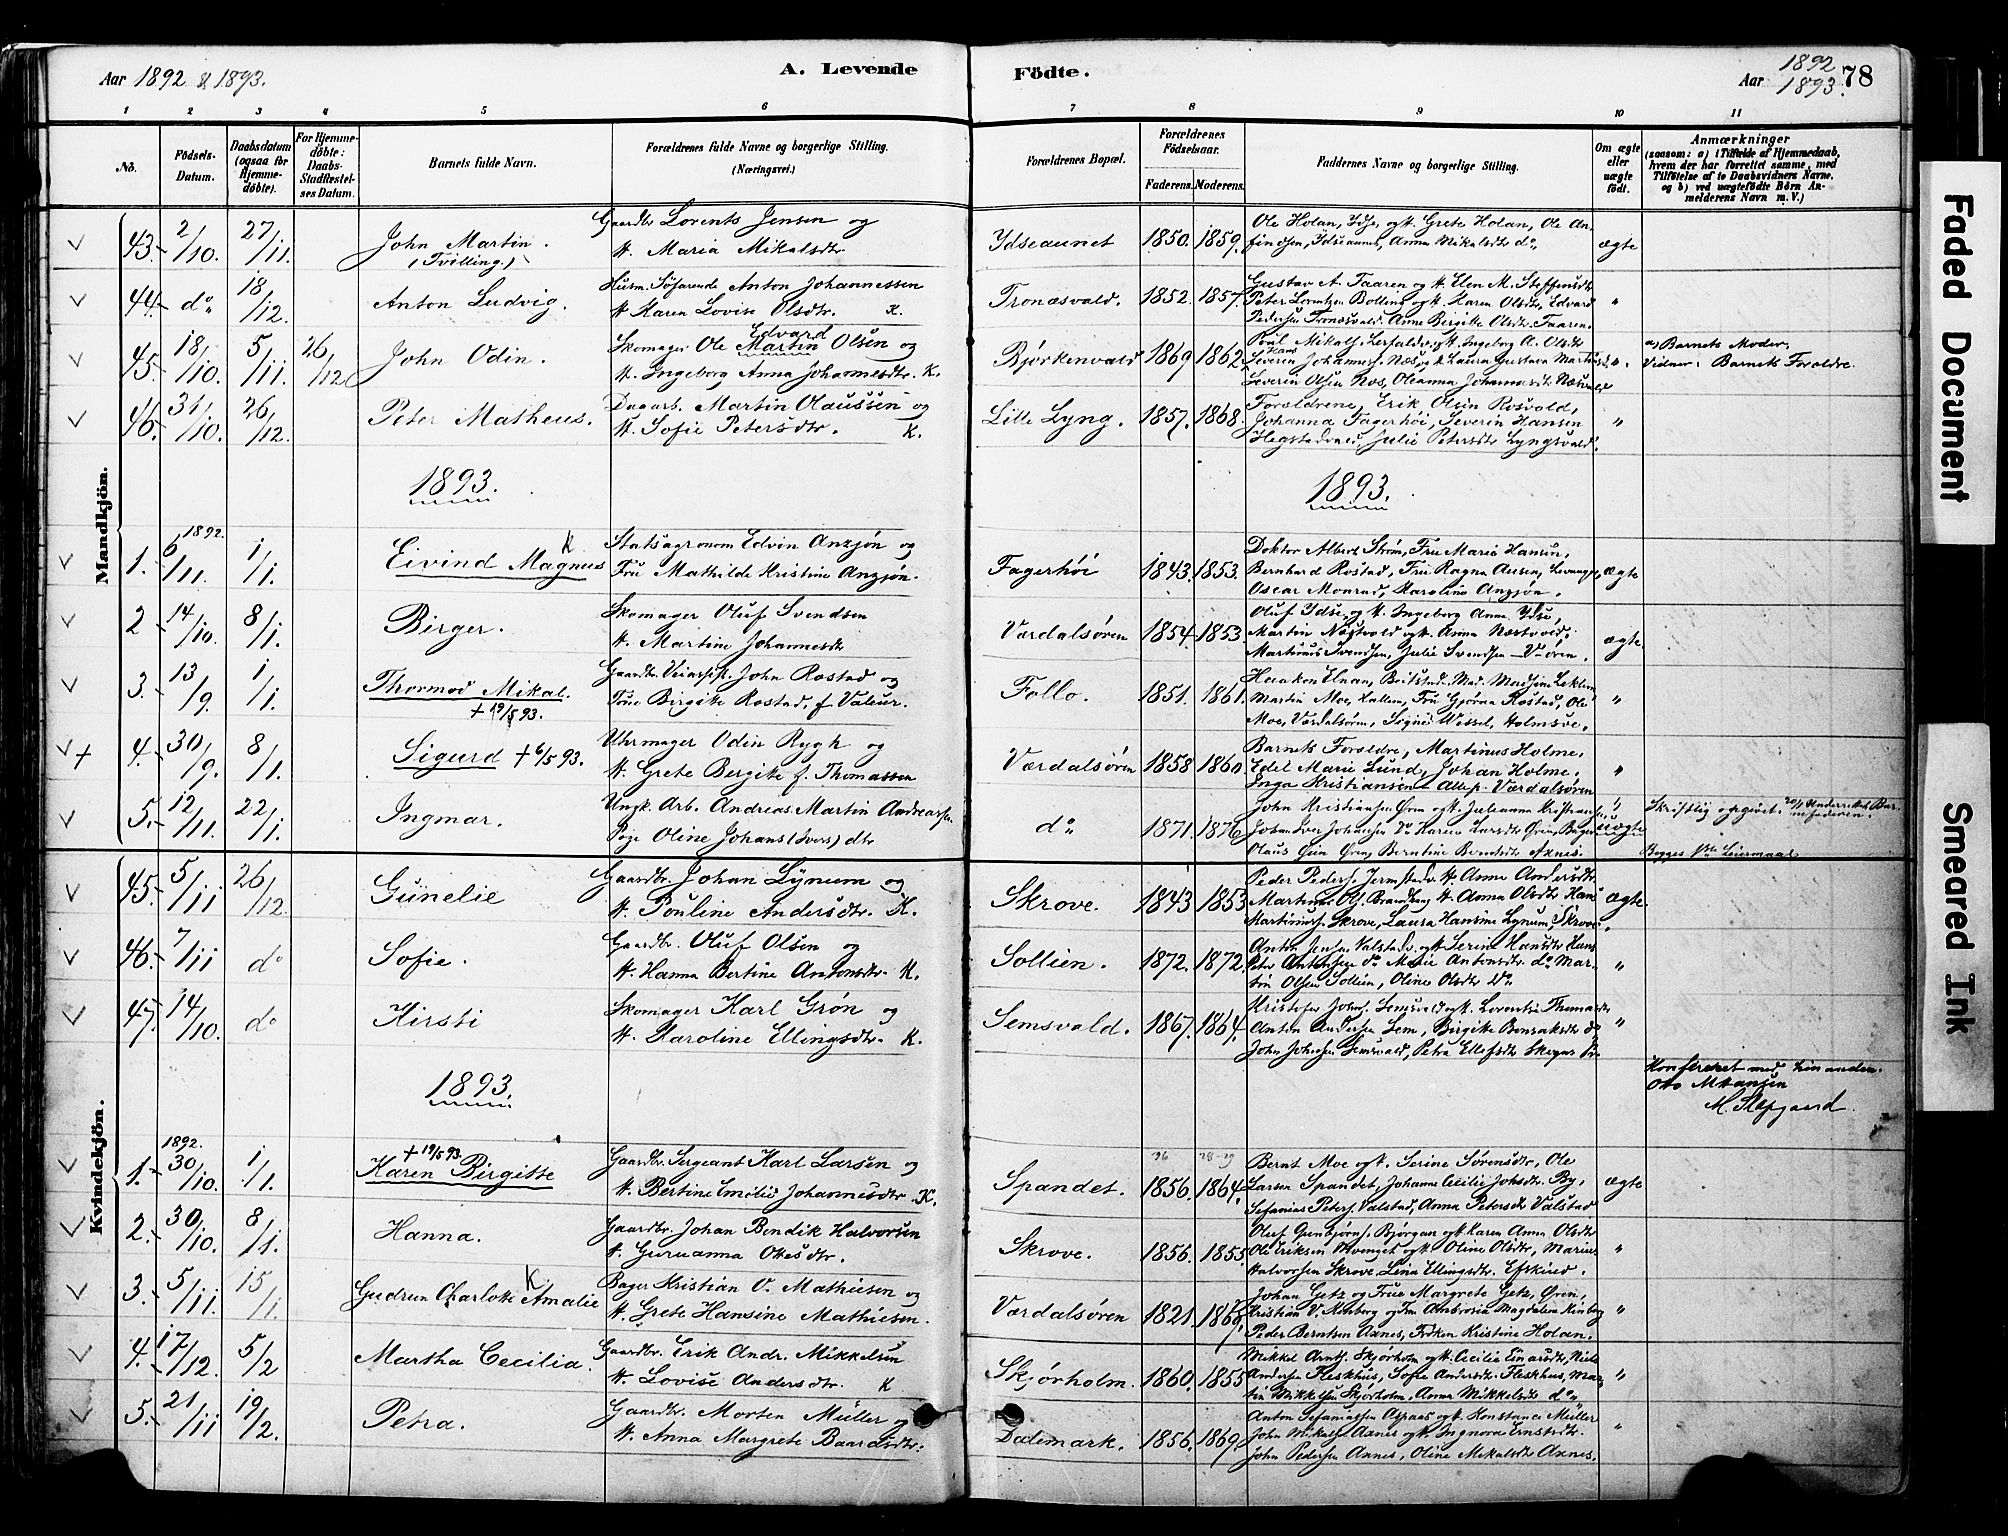 Aar 1892 & 1893.
A. Levende
Födte.
Aar 1892 1893. 78
1 2 3 4 5 6 7 8 9 10 11
No.
Födsels-Datum.
Daabsdatum (ogsaa for Hjemme-döbte).
For Hjemme-döbte: Daabs-Stadfæstel-ses Datum.
Barnets fulde Navn.
Forældrenes fulde Navne og borgerlige Stilling. (Næringsvei.)
Forældrenes Bopæl.
Forældrenes Födselsaar.
Faderens. Moderens.
Faddernes Navne og borgerlige Stilling.
Om ægte eller uægte födt.
Anmærkninger
(saasom: a) i Tilfælde af Hjemmedaab, hvem der har forrettet samme, med Tilföielse af to Daabsvidners Navne, og b) ved uægtefödte Börn An-melderens Navn m. V.)
Mandkjön.
43. 2/10. 27/11. John Martin. (Tvilling.) Gaardbr. Lorents Jensen og H. Maria Mikalsdtr Ydseaunet 1850. 1859. Ole Holan, Ydse, og H. Grete Holan, Ole An-
finsen, Ydseaunet, Anna Mikalsdtr do. ægte
44. do. 18/12. Anton Ludvig. Husm. Söfarende Anton Johannessen H. Karen Lovise Olsdtr. K. Tronæsvald. 1852. 1857. Gustav A. Faaren og H. Elen M. Steffensdtr
Peter Lorntzen Bolling og H. Karen Olsdtr, Edvard
Pedersen Tronæsvald. Anne Birgitte Olsdtr. Faaren. "
45. 18/10. 5/11. 26/12 John Odin. Skomager Ole Edvard Martin Olsen og H. Ingeborg Anna Johannesdtr. K. Bjørkenvald 1869 1862 Poul Mikals. og H. Ingeborg A. Olsdtr
Severin Johannes. Næs, og H. Laura Gustava
Severin Olsen Næs, Oleanna Johannesdtr Næsvald " a) Barnets Moder, Vidner: Barnets Forældre.
46. 31/10. 26/12. Peter Matheus. Dagarb. Martin Olaussen og H. Sofie Petersdtr. K. Lille Lyng. 1857. 1868. Forældrene, Erik Olsen Rosvold,
Johanna Fagerhöi, Severin Hansen
Julie Petersdtr Lyngsvald. "
1893.
1893.
1892.
1. 6/11. 1/1. Eivind Magnus K Statsagronom Edvin Anzjøn og Fru Mathilde Kristine Anzjøn. Fagerhöi 1843. 1853. Doktor Albert Strøm, Fru Maria Hansen,
Bernhard Rostad, Fru Ragna Ausen, Levanger,
Oscar Monrad, Karoline Anzjøn. ægte
2 14/10. 8/1. Birger. Skomager Oluf Svendsen H. Martine Johannesdtr Værdalsören 1854. 1853 Oluf Ydse og H. Ingeborg Anna Ydse,
Martin Næstvold og H. Anna Næstvold.
Martinus Svendsen, Julie Svendsen – V.ören. ægte
3. 13/9. 1/1. Thormod Mikal. + 19/5 93. Gaardbr. John Rostad og Frue Birgitte Rostad, f. Valeur. Follo. 1851. 1861.
Martin Moe, Hallem, Fru Gjørna Rostad, Ole
Moe, Værdalsören, Signe Wessel, "
+ 4. 30/9. 8/1. Sigurd + 6/5 93. Uhrmager Odin Rygh og H. Grete Bergitte f. Thomassen Værdalsören 1858 1860 Barnets Forældre, Martinus Holme,
Edel Marie Lund, Johan Holme,
Inga Kristiansen – Alle p. Værdalsören "
5. 12/11. 22/1. Ingmar. Ungk. Arb. Andreas Martin Andreassen Pige Oline Johans (Ivers) dtr do. 1871. 1876. John Kristiansen Ören og H. Julianna
Johan Iver Johansen do Karen Larsdtr Ören,
Olaus Ören, Berntine Berntsdtr Axnes. uægte Skriftlig opgivet. Underrettet Bar-nefaderen. Begges 1ste Leiermaal
Kvindekjön.
45. 5/11 26/12. Gunelie Gaardbr. Johan Lynum og H. Pouline Andersdtr. K. Skrove. 1843 1853 Peder Peders. Jermstadv. H. Anna Andersdtr.
H. Anna Olsdtr Hans
Martinus. Skrove, Laura Hansine Lynum, Skrove. ægte.
46. 7/11 do Sofie. Gaardbr. Oluf Olsen og H. Hanna Bertine Antonsdtr. K. Sollien. 1872. 1872. Anton Jensen Valstadv. og H. Serine Hansdtr Hans
Peter Antonsen do Marie Antonsdtr do. Mar-
tin Olsen Sollien, Oline Olsdtr do "
47. 14/10. do Kirsti Skomager Karl Grøn og H. Karoline Ellingsdtr. K. Semsvald. 1867. 1864. Kristofer Johns. Semsvald og H. Lorentse Thomasdtr
Anton Andersen Sem, Birgitte Bonsaksdtr do
John Johnsen Semsvald, Petra Ellefsdtr "
Konfereret med hinanden.
Otto M Hansen
M. Slapgaard.
1893.
1892.
1. 30/10. 1/1. + 19/5 93. Karen Birgitte Gaardbr. Sergeant Karl Larsen og H. Bertine Emilie Johannesdtr. K. Spandet. 1856. 1864. Bernt Moe og H. Serine Sørensdtr, Ole
Larsen Spandet, Johanna Cecilie Johsdtr. By,
Sefanias Peters. Valstad, Anna Petersdtr Valstad ægte
2. 30/10. 8/1. Hanna. Gaardbr. Johan Bendik Halvorsen H. Guruanna Ottesdtr. Skrove. 1856. 1855. Oluf Gunbjørns. Bjørgan og H. Karen Anna Olsdtr
Ole Eriksen og H. Oline Olsdtr, Marius
Halvorsen Skrove, Lina Ellingsdtr. Efskind. "
3. 5/11. 15/1. Gudrun Charlotte Amalie K Bager Kristian V. Mathiesen og H. Grete Hansine Mathiesen. Værdalsören 1821. Johan Getz og Frue Margrete Getz, Ören,
Kristian V. Kinberg og Fru Ambrosia Magdalena Kinberg
Peder Berntsen Axnes, Frøken Kristine Holan. "
4. 17/12. 5/2 Martha Cecilia. Gaardbr. Erik Andr. Mikkelsen H. Lovise Andersdtr. K Skjørholm. 1860. 1855 Mikkel Arnts. Skjørholm og H. Cecilie Einarsdtr, Niels
Andersen Fleskhus, Sofie Andersdtr Fleskhus, Mar-
tin Mikkelsen Skjørholm, Anna Mikkelsdtr do. "
5. 21/11 19/2. Petra. Gaardbr. Morten Müller og H. Anna Margrete Baardsdtr. Dalemark. 1856. 1869. Anton Sefaniassen Aspaas og H. Konstance Müller
John Mikals. Axnes og H. Ingnora Ernstsdtr.
John Pedersen Axnes, Oline Mikalsdtr Axnes. "
Faded Document
Smeared Ink